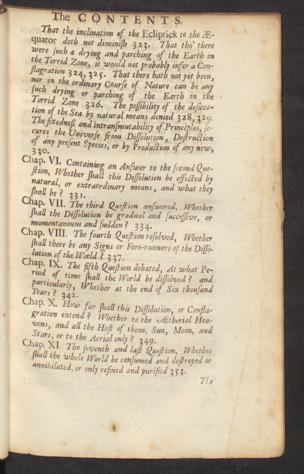 The CONTENTS.
That the inclination of the Ecliptick to the Æ-
quator doth not diminish 323. That tho' there
were such a drying and parching of the Earth in
the Torrid Zone, it would not probably infer a Con-
flagration 324, 325. That there hath not yet been,
nor in the ordinary Course of Nature can be any
such drying or parching of the Earth in the
Torrid Zone 326. The possibility of the desicca-
tion of the Sea by natural means denied 328, 329.
The fixedness and intransmutability of Principles, se-
cures the Universe from Dissolution, Destruction
of any present Species, or by Production of any new,
330.
Chap. VI. Containing an Answer to the second Que-
stion, Whether shall this Dissolution be effected by
natural, or extraordinary means, and what they
shall be? 331.
Chap. VII. The third Question answered, Whether
shall the Dissolution be gradual and successive, or
momentaneous and sudden? 334.
Chap. VIII. The fourth Question resolved, Whether
shall there be any Signs or Fore-runners of the Disso-
lution of the World? 337.
Chap. IX. The fifth Question debated, At what Pe-
riod of time shall the World be dissolved? and
particularly, Whether at the end of Six thousand
Years? 342.
Chap. X. How far shall this Dissolution, or Confla-
gration extend? Whether to the Ætherial Hea-
vens, and all the Host of them, Sun, Moon, and
Stars, or to the Aerial only? 349.
Chap. XI. The seventh and last Question, Whether
shall the whole World be consumed and destroyed or
annihilated, or only refined and purified 353.
The